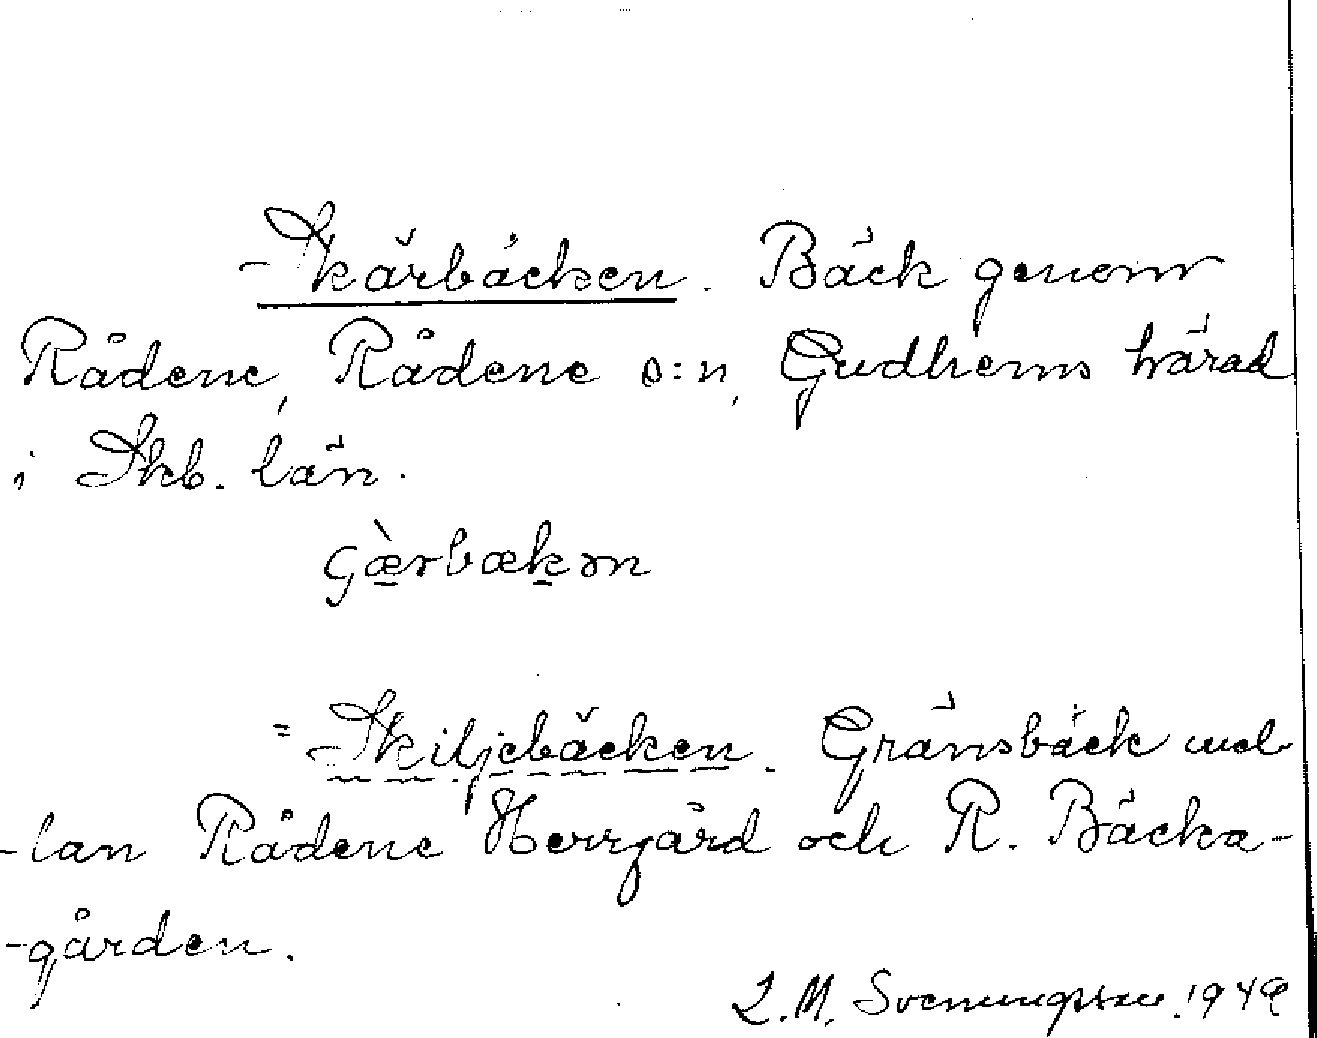 Skärbäcken. Bäck genom
Rådene, Rådene s:n, Gudhems härad
i Skb. län.
= Skiljebäcken. Gränsbäck mel-
-lan Rådene Herrgård och R. Bäcka-
-gården.
L.M. Svenungsson. 1949